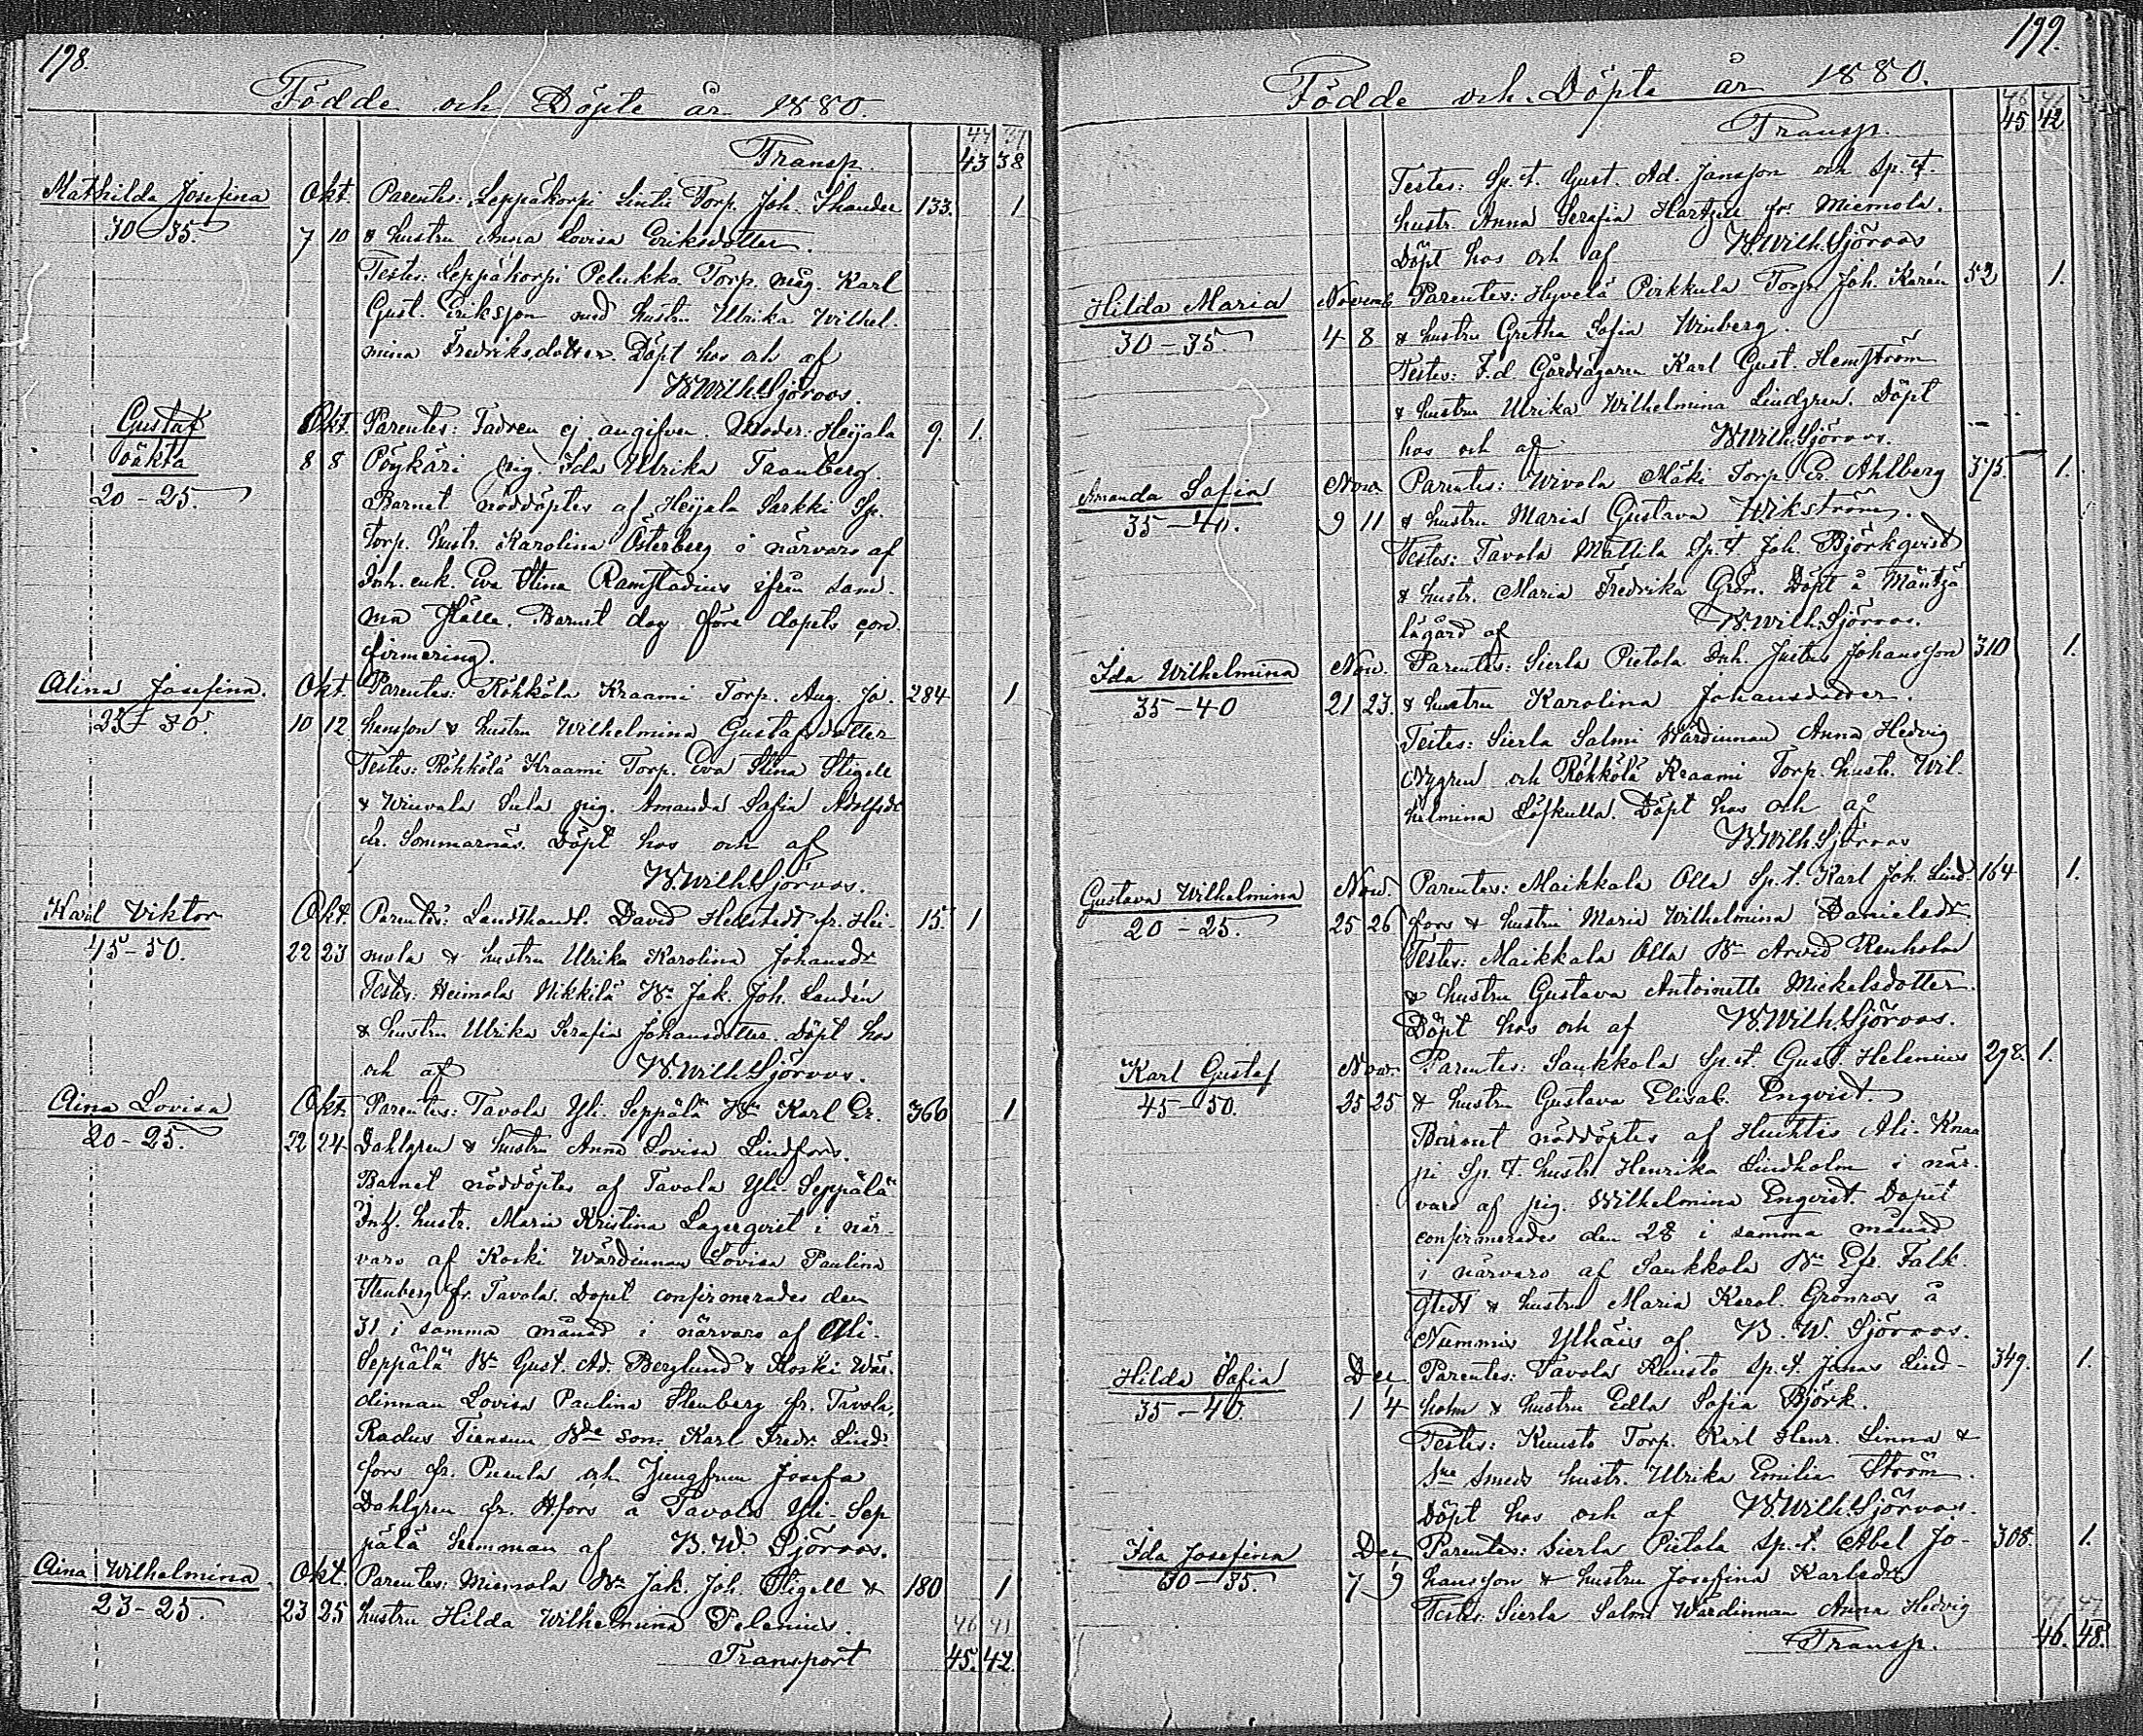 198.
Födde och Döpte år 1880.
44 39
Transp. 43 38
Mathilda Josefina Okt. Parentes: Leppäkorpi Lintu Torp. Joh. 133. 1
30-35. 7 10 & hustru Anna Lovisa Eriksdotter.
Testes: Leppäkorpi Pelukka Torp. måg. Karl
Gust. Eriksson med hustru Ulrika Wilhel-
mina Fredriksdotter. Döpt hos och af
B. Wilh. Sjöroos.
Gustaf Okt. Parentes: Fadren ej angifven. Moder: Heijala 9. 1.
oäkta 8 8 pig. Ida Ulrika Tranberg.
20-25. Barnet nöddöptes af Heijala Sarkki Sp.
torp. hustr. Karolina Österberg i närvaro af
Inh. enk. Eva Stina Ramstadius ifrån sam-
ma ställe. Barnet dog före dopets con-
firmering.
Alina Josefina. Okt. Parentes: Röhkölä Kraami Torp. Aug. Jo- 284 1
10 12 hansson & hustru Wilhelmina Gustafsdotter
Testes: Röhkölä Kraami Torp. Eva Stina Stigell
& Sula pig. Amanda Sofia Adolfsdr
fr. Sommarnäs. Döpt hos och af
B. Wilh. Sjöroos.
Karl Viktor Okt. Parentes: Landthandl. David Hellstedt fr. Hei- 15. 1
45-50. 22 23 mola & hustru Ulrika Karolina Johansdr
Testes: Heimola Nikkilä Bn Jak. Joh. Landén
& hustru Ulrika Serafia Johansdotter. Döpt hos
och af B. Wilh. Sjöroos.
Aina Lovisa Okt. Parentes: Tavola Yli-Seppälä Bn Karl Er. 360 1
20-25. 22 24 Dahlgren & hustru Anna Lovisa Lindfors.
Barnet nöddöptes af Tavola Yli-Seppälä
Inh. hustr. Maria Kristina Lagerqvist i när-
varo af Koski Wärdinnan Lovisa Paulina
Stenberg fr. Tavola. Dopet confirmerades den
31 i samma månad i närvaro af Ali-
Seppälä Bn Gust. Ad. Berglund & Koski Wär-
dinnan Lovisa Paulina Stenberg fr. Tavola,
Radus Tiensuu Bde son. Karl Fredr. Lind-
fors fr. Pusula och Jungfrun Josefa
Dahlgren fr. Hfors å Tavola Yli-Sep
pälä hemman af B. W. Sjöroos.
Aina Wilhelmina. Okt. Parentes: Miemola Bn Jak. Joh. Stigell & 180 1
23-25. 23 25 hustru Hilda Wilhelmina Pelenius.
46 41
Transport 45. 42.
199.
Födde och Döpte år 1880.
46 41
Transp. 45 42
Testes: Sp. t. Gust. Ad. Jansson och Sp. t.
hustr. Anna Serafia Hartzell fr. Miemola.
Döpt hos och af B. Wilh. Sjöroos
Hilda Maria Novemb. Parentes: Hyvelä Pirkkula Torp. Joh. Karén 52 1.
30-35 4 8 & hustru Gretha Sofia Winberg.
Testes: F.d Gårdsägaren Karl Gust. Hemström
& hustru Ulrika Wilhelmina Lindgren. Döpt
hos och af B. Wilh. Sjöroos.
Amanda Sofia Nov. Parentes: Wivola Mäki Torp. Er. Ahlberg 375. 1.
35-40. 9 11 & hustru Maria Gustava Wikström.
Testes: Tavola Mattila Sp. t. Joh. Björkqvist
& hustr. Maria Fredrika Grön. Döpt å Mäntzä
lägård af B. Wilh. Sjöroos.
Ida Wilhelmina Nov. Parentes: Sierla Pietola Inh. Justus Johansson 310 1.
35-40 21 23. & hustru Karolina Johansdotter.
Testes: Sierla Salmi Wärdinnan Anna Hedvig
Nygren och Röhkölä Kraami Torp. hustr. Wil-
helmina Löfkulla. Döpt hos och af
B. Wilh. Sjöroos
Gustava Wilhelmina Nov. Parentes: Maikkala Olla Sp. t. Karl Joh. Lind- 164 1.
20-25. 25 26 fors & hustru Maria Wilhelmina Danielsdr.
Testes: Maikkala Olla Bn Arvid Renholm
& hustru Gustava Antoinette Mickelsdotter.
Döpt hos och af B. Wilh. Sjöroos.
Karl Gustaf Nov. Parentes: Saukkola Sp. t. Gust. Helenius 298. 1.
45-50. 25 25 & hustru Gustava Elisab. Engvist.
Barnet nöddöptes af Huhtis Ali-Knaa
pi Sp. t. hustr. Henrika Lindholm i när-
varo af pig. Wilhelmina Engvist. Dopet
confirmerades den 28 i samma månad
i närvaro af Saukkola Bn Efr. Falk-
stedt & hustru Maria Karol. Grönroos å
Nummis Ylhäis af B. W. Sjöroos.
Hilda Sofia Dec. Parentes: Tavola Kuusto Sp. t. Jonas Lind- 349. 1.
35-40. 1 4 holm & hustru Edla Sofia Björk.
Testes: Kuusto Torp. Karl Henr. Linna &
Sne Smeds hustr. Ulrika Emilia Ström.
Döpt hos och af B. Wilh. Sjöroos.
Ida Josefina Dec. Parentes: Sierla Pietola Sp. t. Abel Jo- 308. 1.
30-35. 7 9 hansson & hustru Josefina Karlsdr
Testes: Sierla Salmi Wärdinnan Anna Hedvig
47 47
Transp. 46. 48.